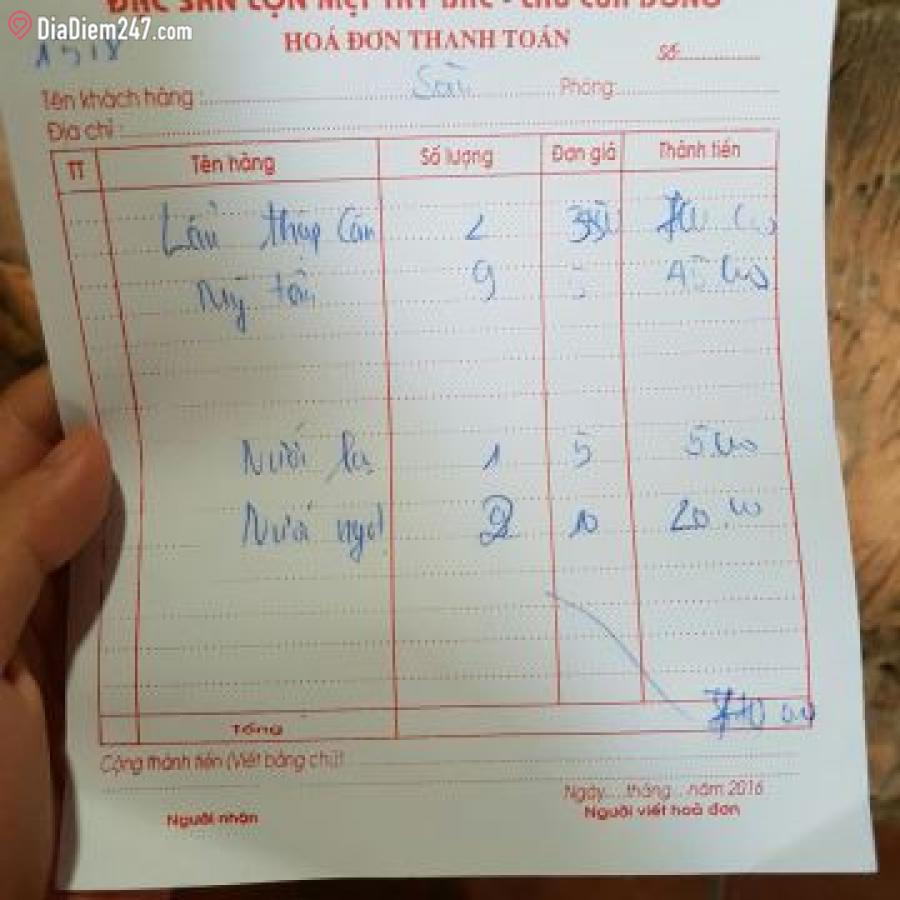 DiaDiem247.com
ĐẶC SẢN LỢN MẸT TÂY BẮC - CHU CỬA ĐÔNG
1518
HOÁ ĐƠN THANH TOÁN
Số:
Tên khách hàng : Phòng:
Địa chỉ :
TT Tên hàng Số lượng Đơn giá Thành tiền
Lẩu thập cẩm 2 350 700 000
Mỳ tôm 9 5 45 000
Nước lọc 1 5 5.000
Nước ngọt 2 10 20.000
Tổng 770 000
Cộng thành tiền (Viết bằng chữ)
Ngày....tháng...năm 2016
Người nhận Người viết hoá đơn